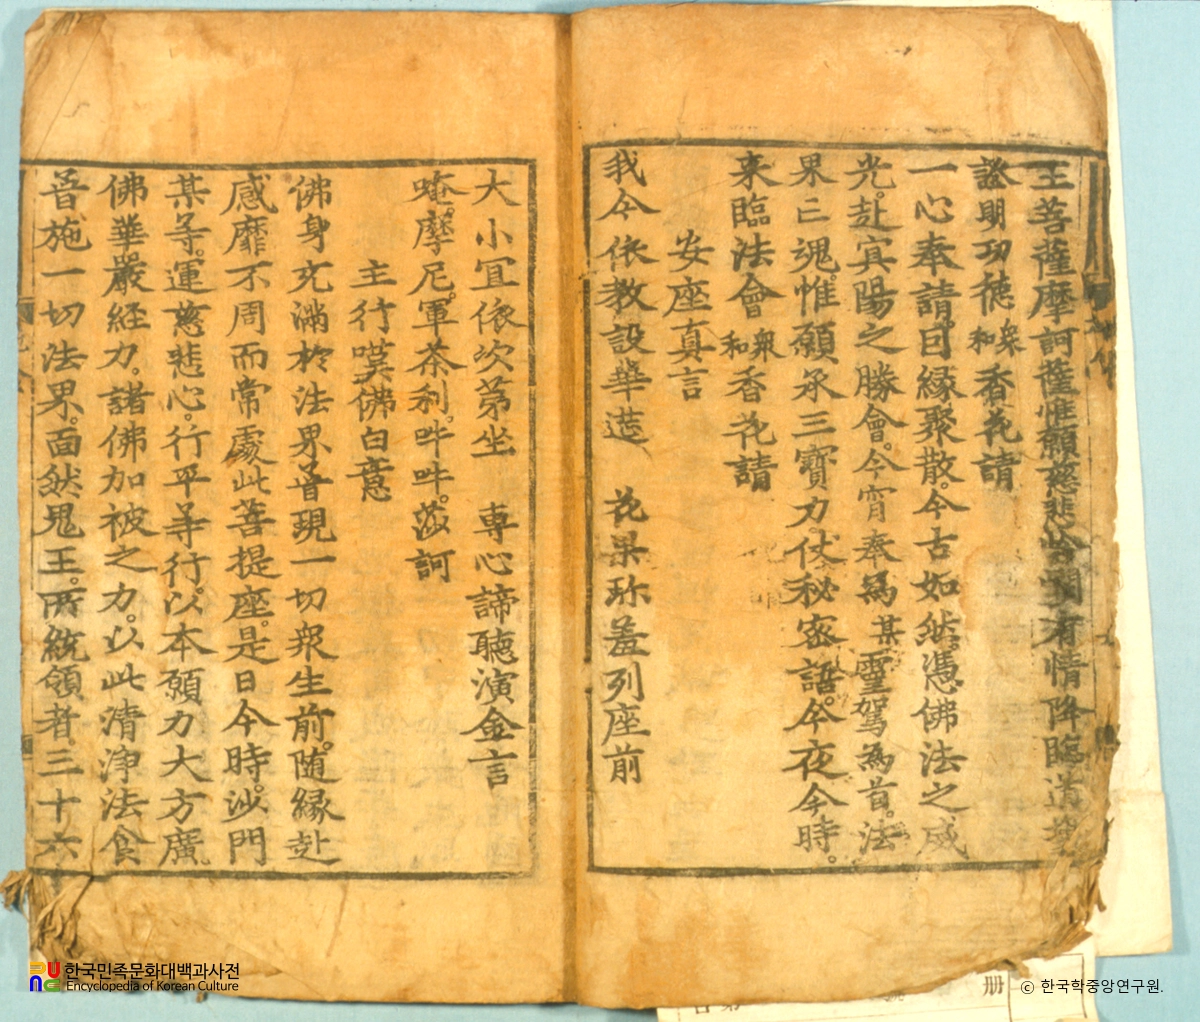 王菩薩摩訶薩惟願慈悲怜愍有情降臨道塲
證明功德 和衆 香花請
一心奉請因縁聚散。今古如然。憑佛法之威
光。赴冥陽之勝會。今宵奉爲 某 霊駕爲首。法
果亡魂惟願承三寳力。仗秘密語。今夜今時。
来臨法會 和衆 香花請
安座真言
我今依教設華莚 花果珎羞列座前
大小冝依次第坐 専心諦聴演金言
唵。摩尼。軍茶利。吽吽。莎訶
主行嘆佛白意
佛身充滿於法界普現一切衆生前。随縁赴
感靡不周而常處此菩提座。是日今時。沙門
某等。運慈悲心。行平等行。以本願力大方廣
佛華嚴経力。諸佛加被之力。以此清浄法食
普施一切法界。面然鬼王。所統領者。三十六
한국민족문화대백과사전
Encyclopedia of Korean Culture
册
ⓒ 한국학중앙연구원.